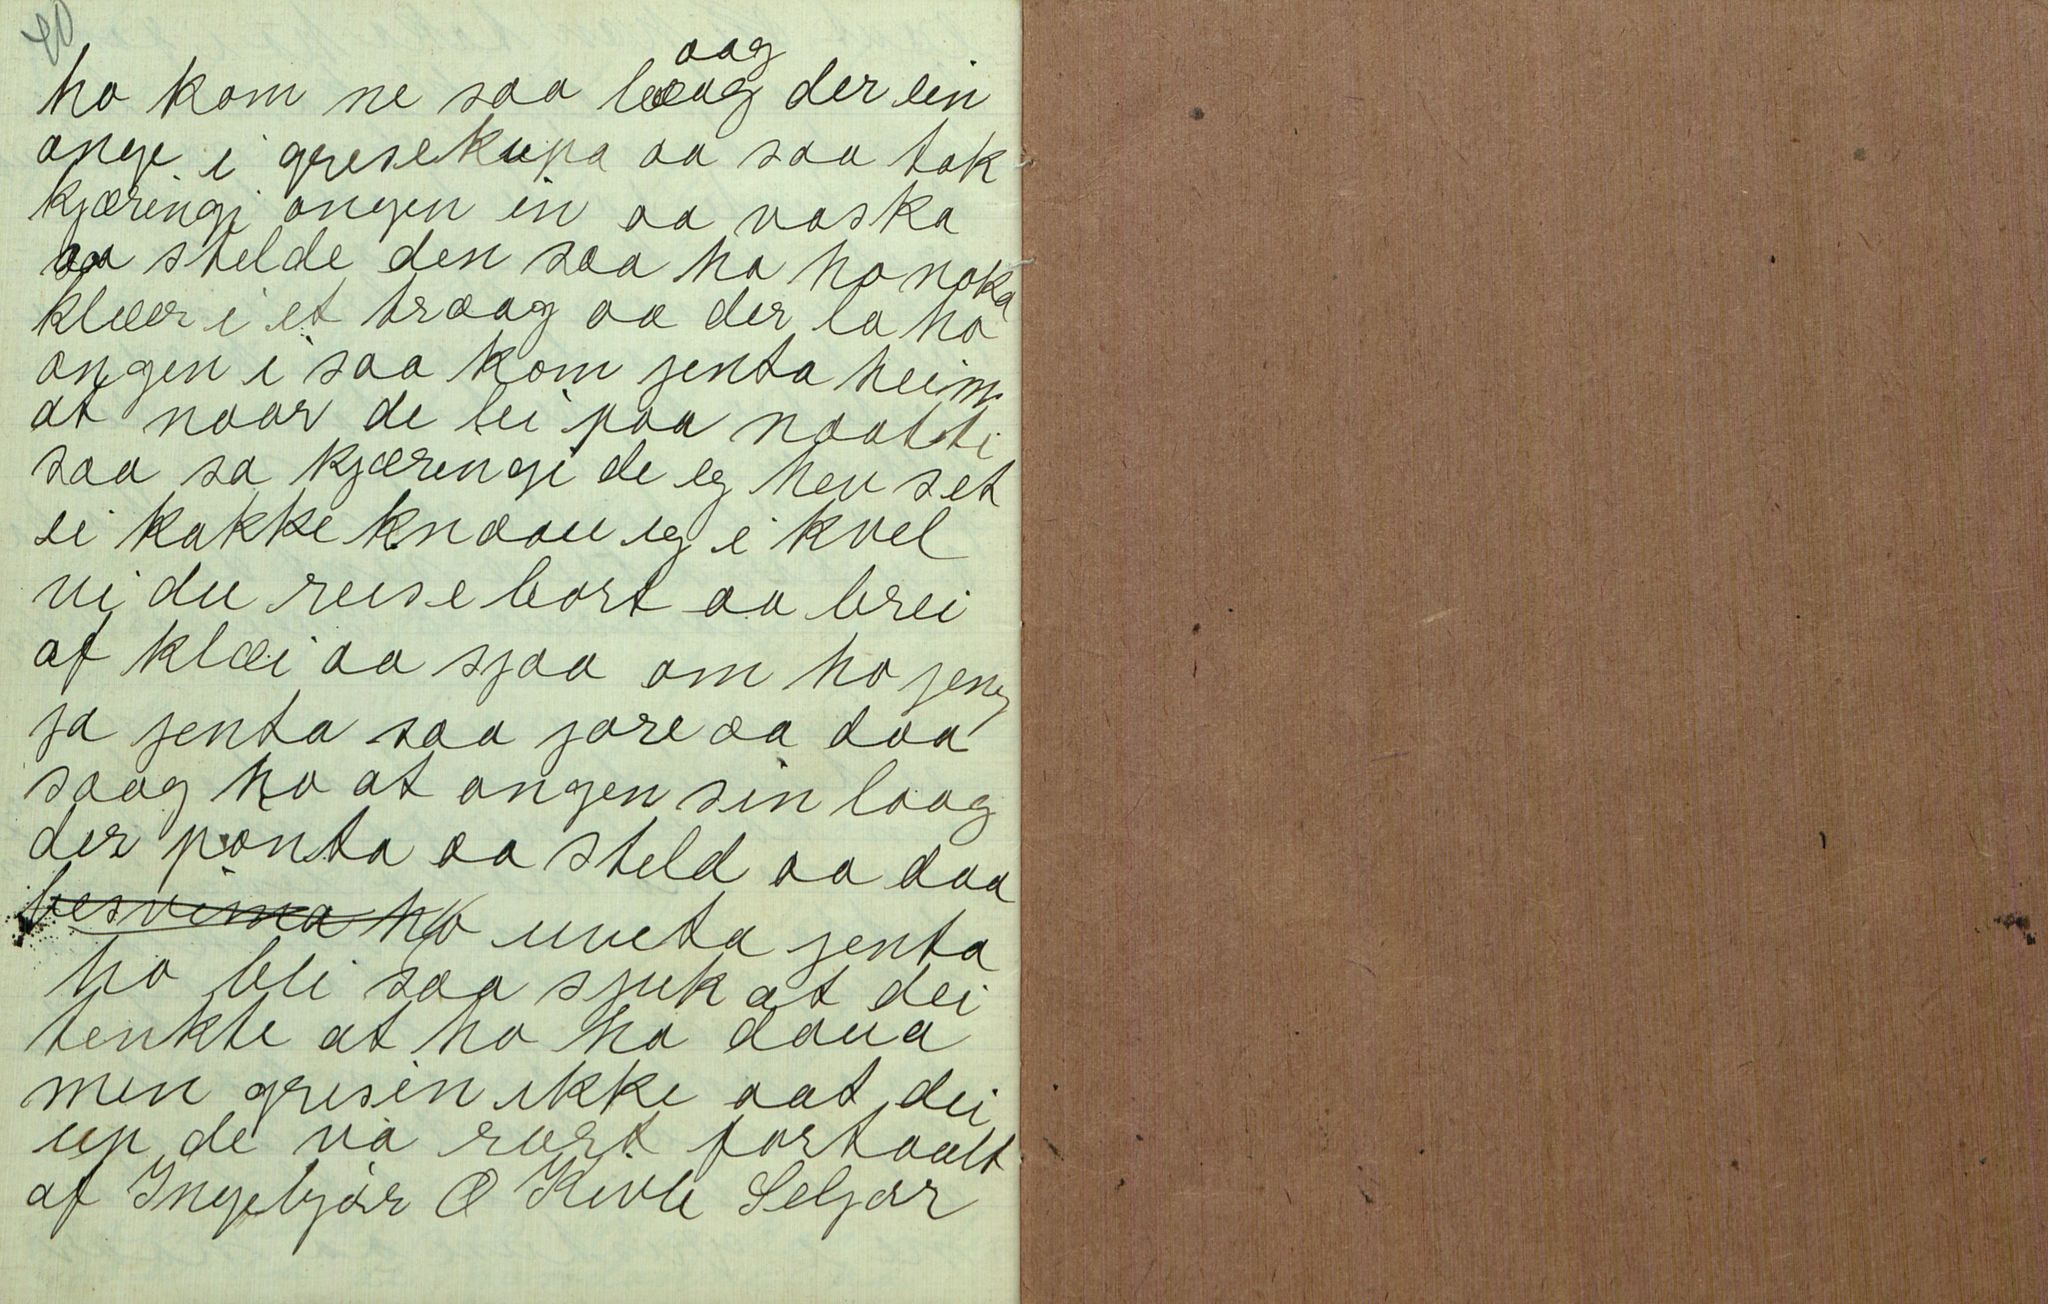 oag
ho kom ne saa laag der ein
onge i grisekupa aa saa tok
kjæringi ongen in aa vaska
aa stelde den saa ha ho noka
klæær i et traag aa der la ho
ongen i saa kom jenta heim
at naar de lei paa naatti
saa sa kjæringi de eg hev set
ei kakke knaau eg i kvel
vi du reise bort aa brei
af klæi aa sjaa om ho jeng
ja jenta saa jore aa daa
saag ho at ongen sin laag
der pønta aa steld aa daa
besvima ho uveta jenta
ho blei saa sjuk at dei
tenkte at ho ha daua
men grisen ikke aat dei
up de va rart fortaalt
af Ingebjør O Kivle Seljor